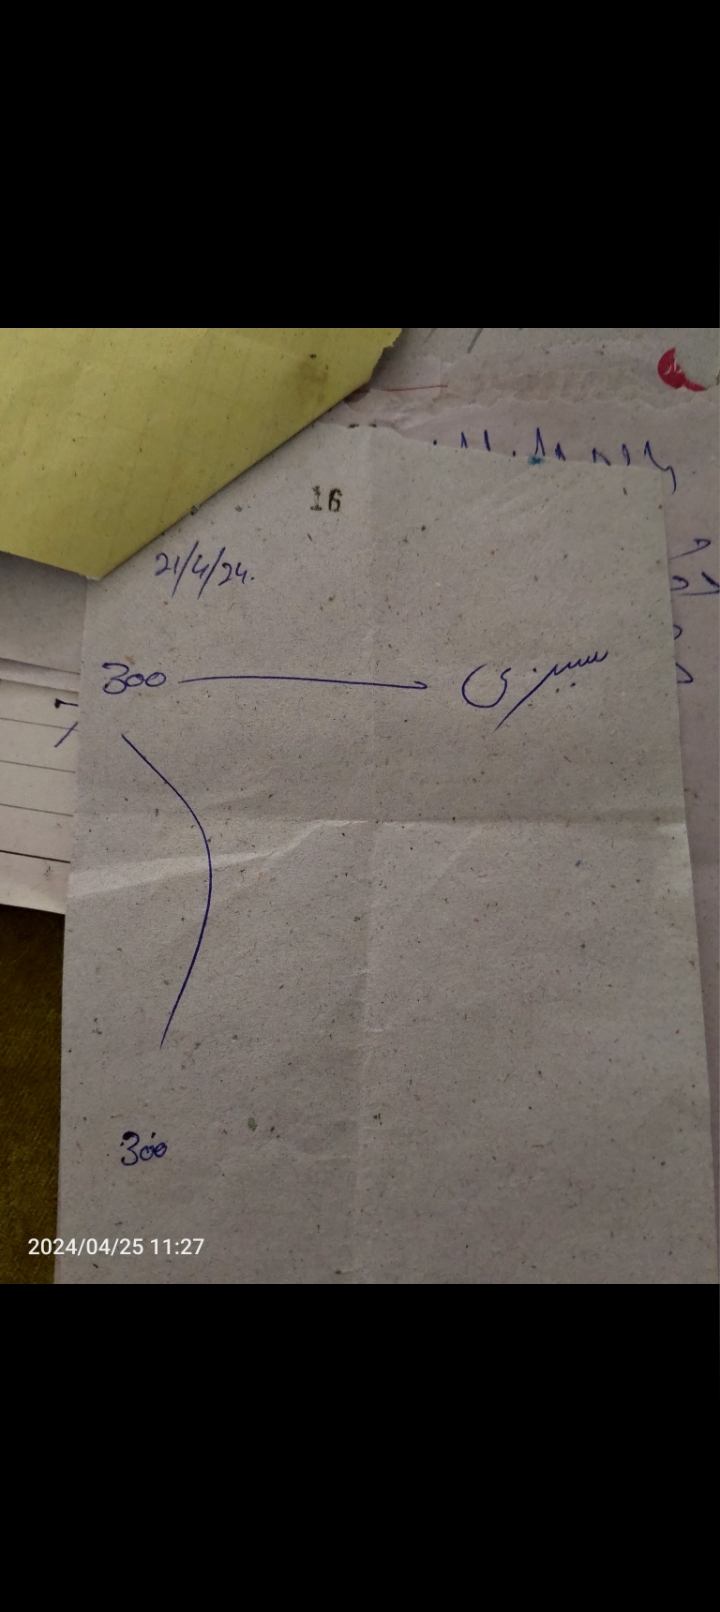 16
21/4/24.
300 سبزی
300
2024/04/25 11:27